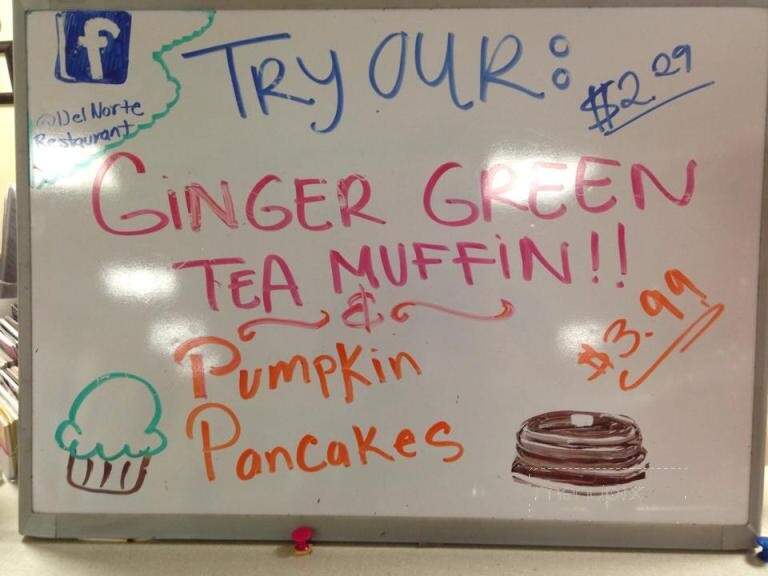 f
@Del Norte
Restaurant
TRY OUR:
$2.29
GiNGER GREEN
TEA MUFFiN!!
&
$3.99
Pumpkin
Pancakes
menupix